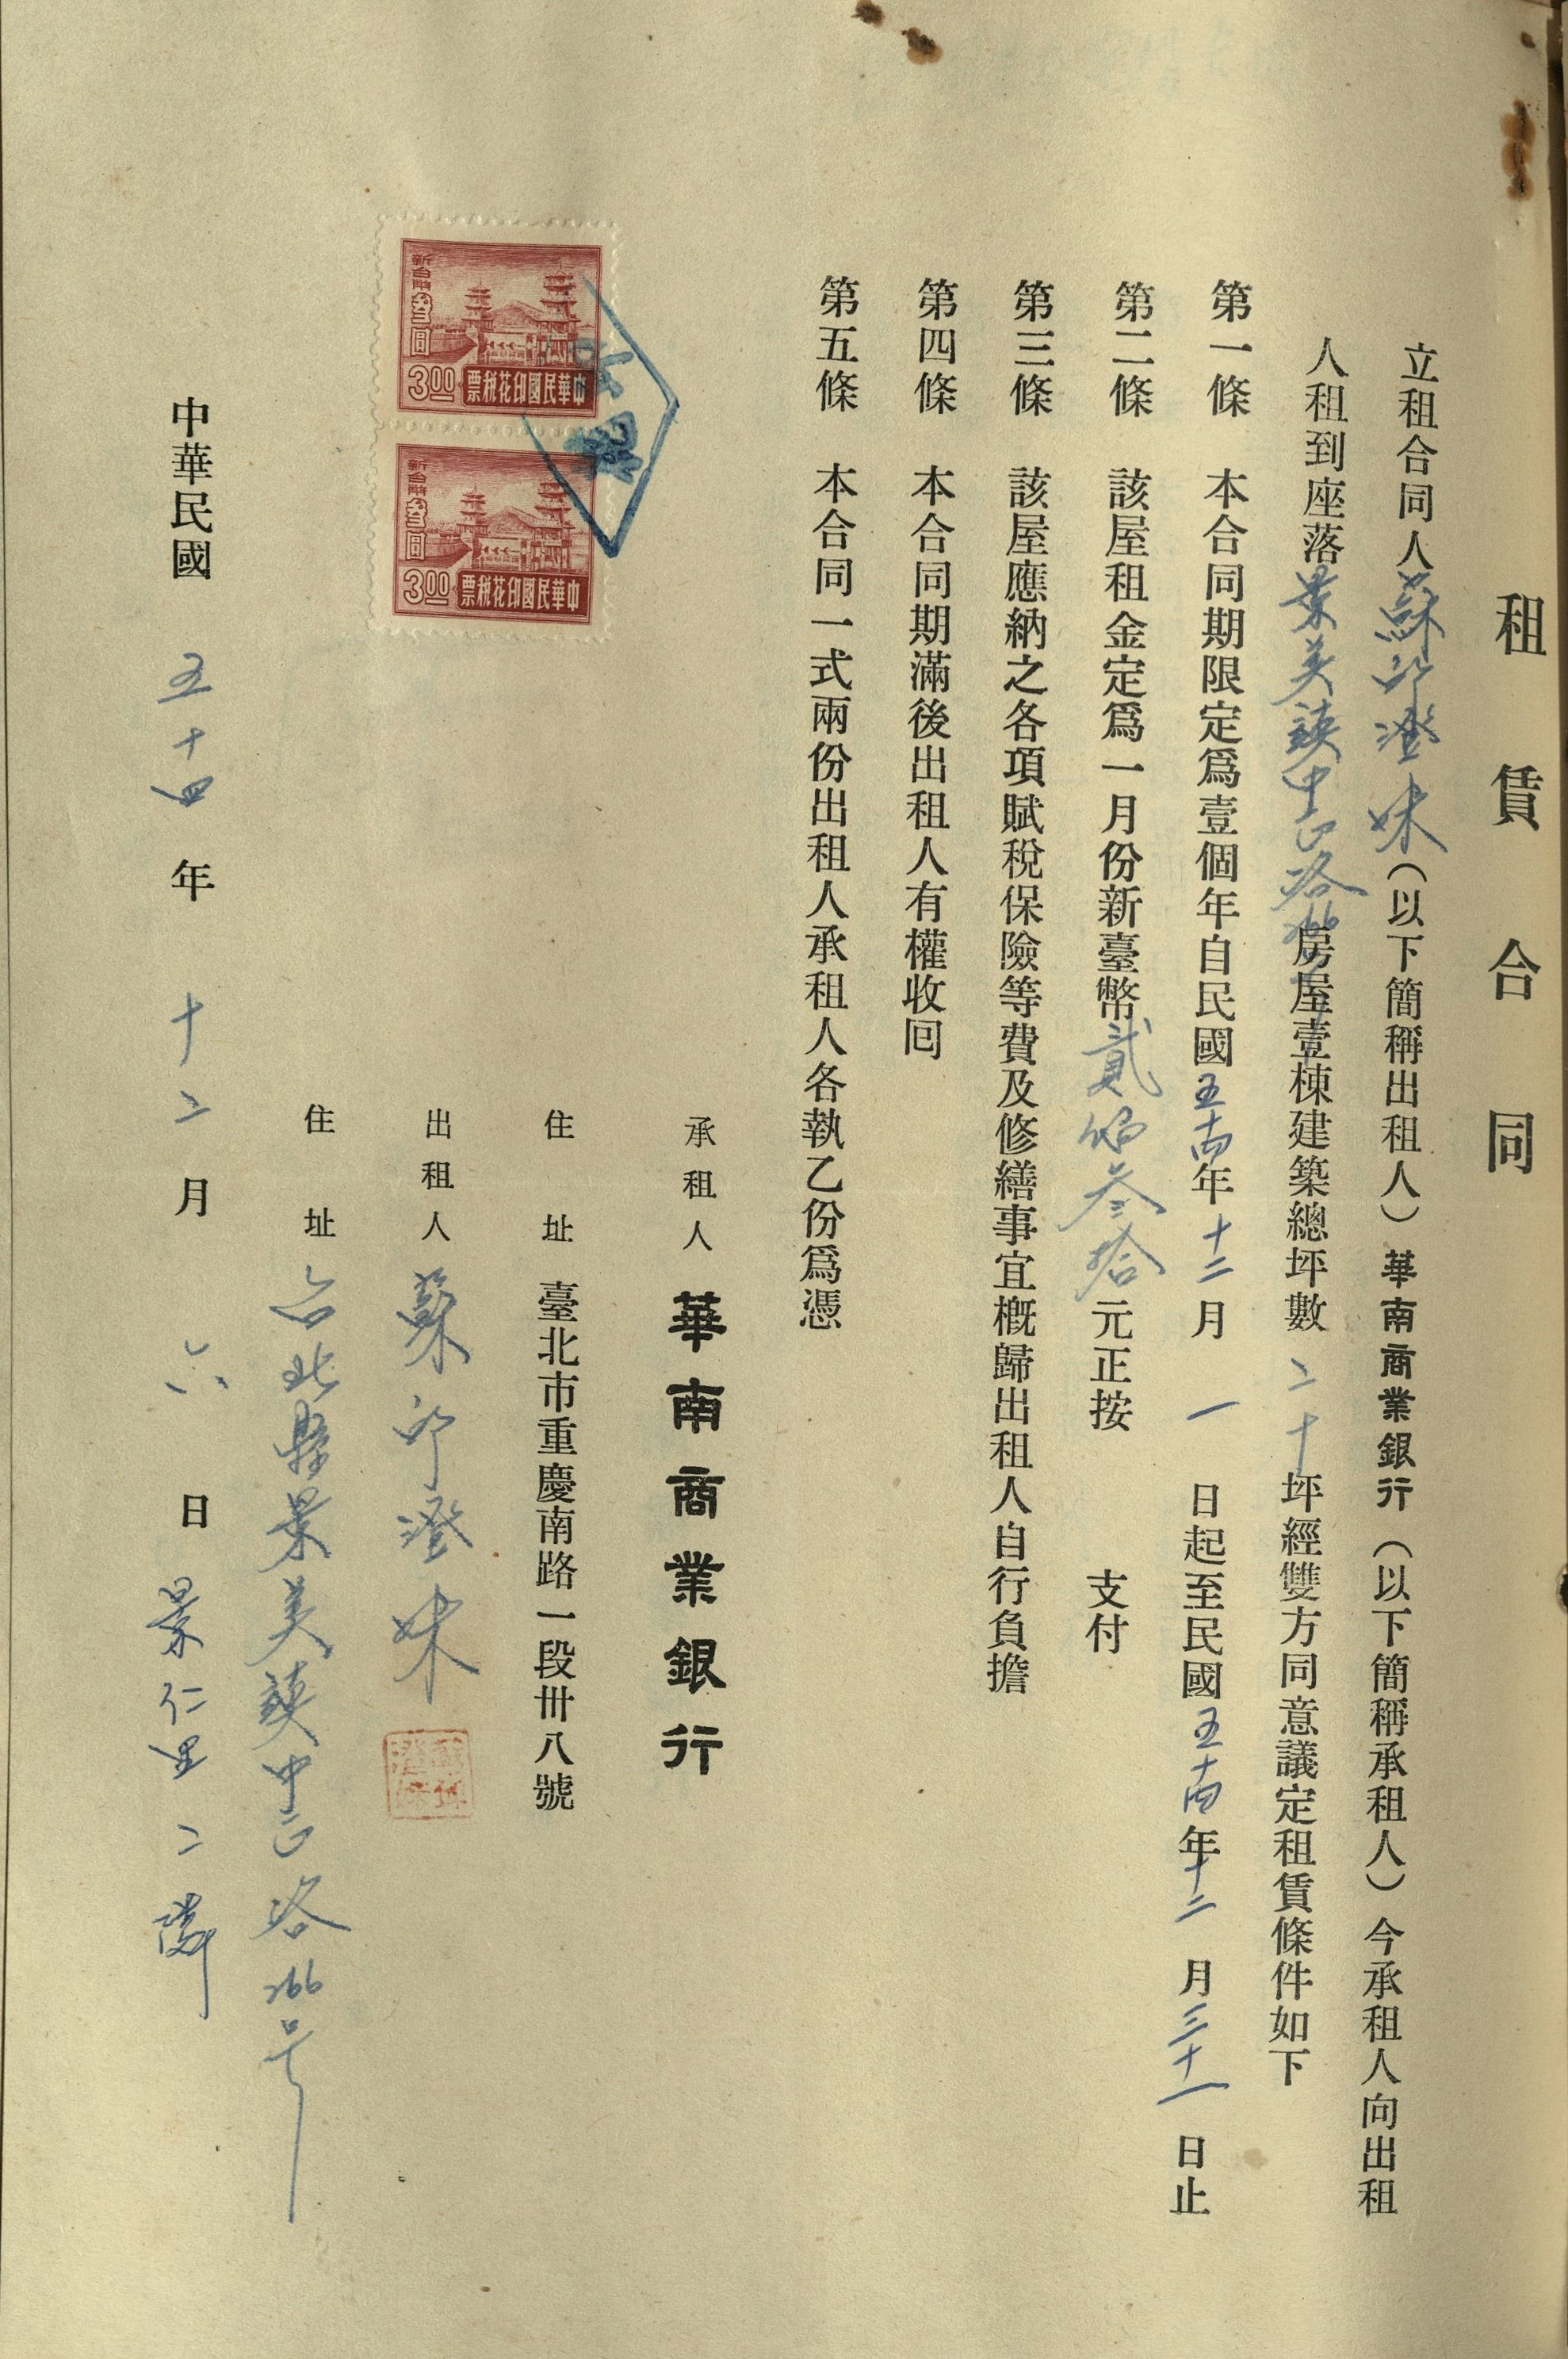 租賃合同
立租合同人蘇邱澄妹(以下簡稱出租人)華南商業銀行(以下簡稱承租人)今承租人向出租
人租到座落景美鎮中正路266号房屋壹棟建築總坪數二十坪經雙方同意議定租賃條件如下
第一條　本合同期限定爲壹個年自民國五十四年十二月一日起至民國五十四年十二月三十一日止
第二條　該屋租金定爲一月份新臺幣貳佰叁拾元正按　支付
第三條　該屋應納之各項賦稅保險等費及修繕事宜概歸出租人自行負擔
第四條　本合同期滿後出租人有權收回
第五條　本合同一式兩份出租人承租人各執乙份爲憑
承租人　華南商業銀行
住址　臺北市重慶南路一段卅八號
出租人　蘇邱澄妹
住址　台北縣景美鎮中正路266号
中華民國五十四年十二月六日　景仁里二鄰
新台幣叁圓
3.00
中華民國印花稅票
新台幣叁圓
3.00
中華民國印花稅票